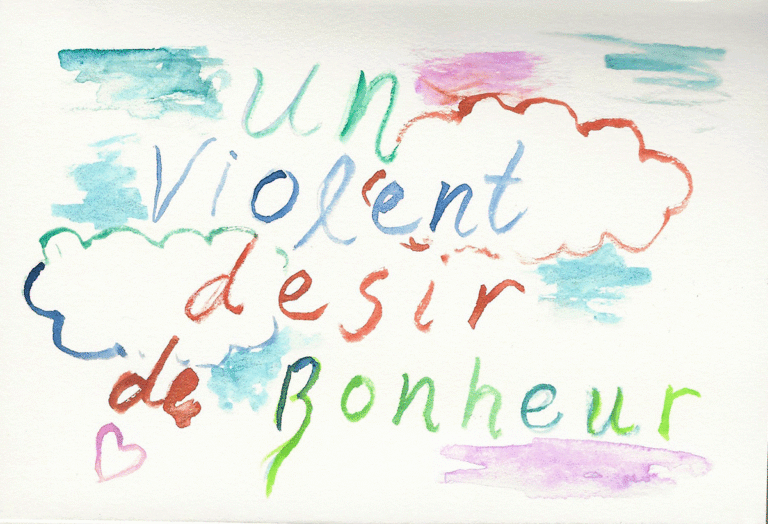 un
Violent
desir
de Bonheur